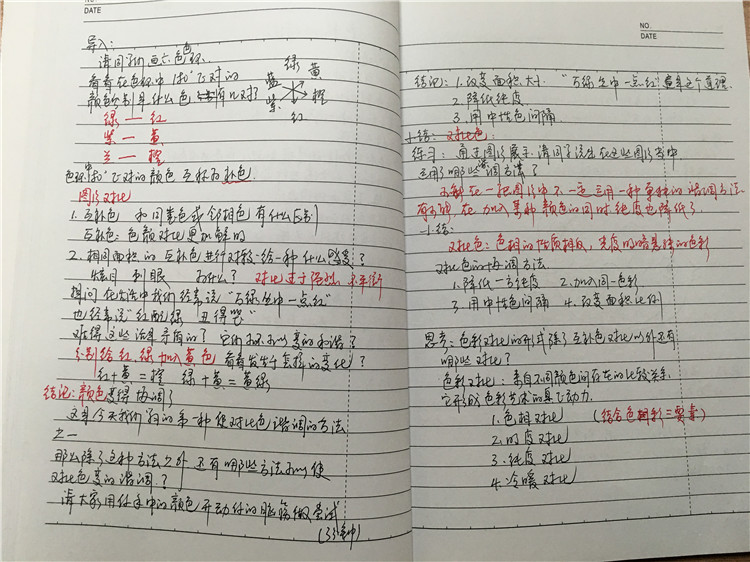 DATE
导入:
请同学们画六色环.
看看在色环中180°下对的
颜色分别是什么色 共有几对?
绿 黄
蓝 橙
紫 红
绿 — 红
紫 — 黄
兰 — 橙
色环中180°下对的颜色 互称为补色.
图形对比
1. 互补色 和同类色或邻相色有什么区别
互补色: 色颜对比更加鲜明
2. 相同面积的互补色进行对较给一种什么感受?
炫目 刺眼 为什么? 对比过于强烈, 不平衡
提问 在生活中我们经常说"万绿丛中一点红"
也经常说"红配绿 丑得哭"
难得这些话是矛盾的? 它们和不和以变的和谐?
分别给红.绿加入黄色 看看发生了怎样的变化?
红+黄=橙 绿+黄=黄绿
结论: 颜色变得协调了
这是今天我们学的第一种使对比色谐调的方法
之一
那么除了这种方法之外 还有哪些方法可以使
对比色变的谐调.?
请大家用你手中的颜色开动你的脑筋做尝试
NO.
DATE
结论: 1. 改变面积大小. "万绿丛中一点红"就是这个道理.
2. 降低纯度
3. 用中性色间隔
小结: 对比色:
练习: 通过图形展示.请同学说出在这些图形当中
运用了哪些谐调方法?
不难 在一张图形中不一定运用一种单独的谐调方法
有可能 在加入某种颜色的同时.纯度也降低了.
小结:
对比色: 色相的性质相反, 光度明暗悬殊的色彩
对比色的协调方法
1. 降低一方纯度 2. 加入同一色彩
3. 用中性色间隔 4. 改变面积比例
思考: 色彩对比的形式除了互补色对比以外还有
哪些对比?
色彩对比: 来自不同颜色间存在的比较关系.
它形成色彩艺术的真正动力.
1. 色相对比 (结合色彩三要素)
2. 明度对比
3. 纯度对比
4. 冷暖对比